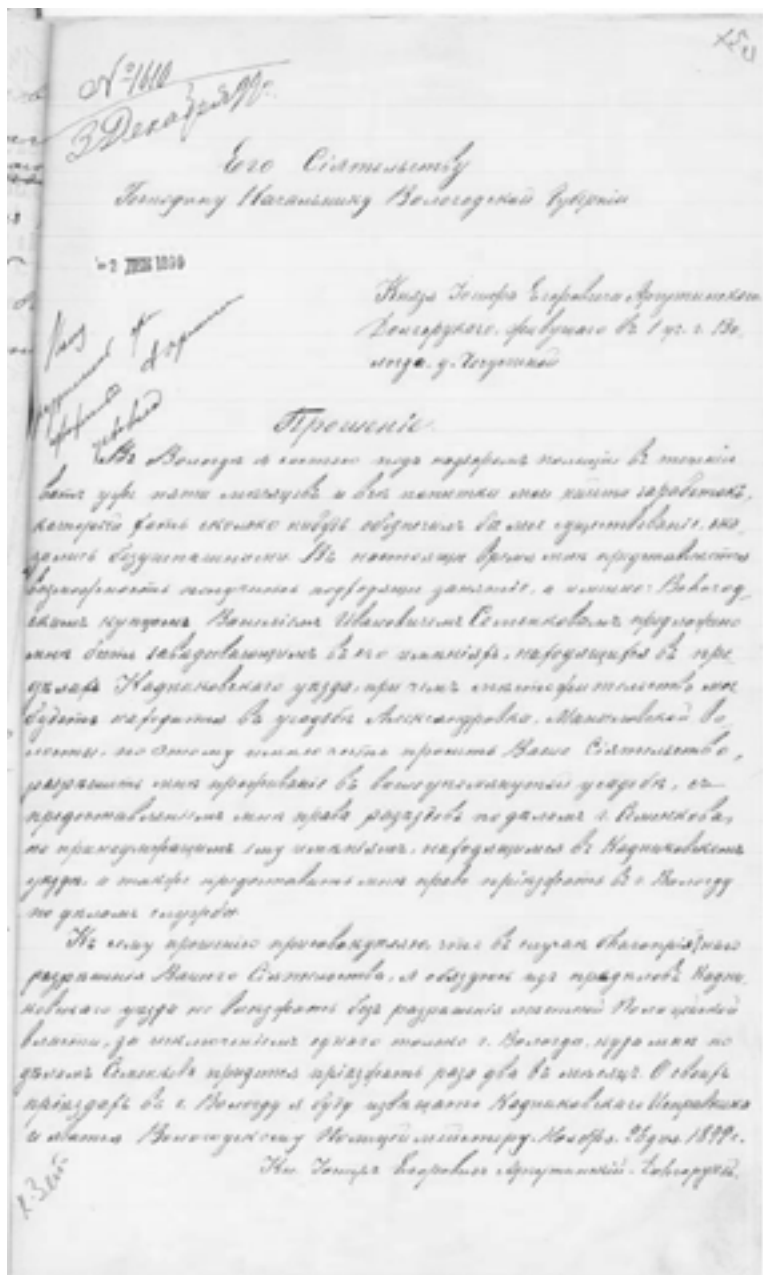 № 1610
3 Декабря 99 г.
Его Сіятельству
Господину Начальнику Вологодской Губерніи
- 2 ДЕК 1899
Князя Егоровича Аргутинскаго
Долгорукаго, живущаго въ 1 уч. г. Во-
логда, д.
Прошеніе.
Въ Вологдѣ я состою подъ надзоромъ полиціи въ теченіе
вотъ уже пяти мѣсяцевъ и всѣ попытки мои найти заработокъ,
который хоть сколько нибудь обезпечилъ бы мое существованіе, ока-
зались безуспѣшными. Въ настоящее время мнѣ представляется
возможность получить подходящее занятіе, а именно: Вологод-
скимъ купцомъ Василіемъ Ивановичемъ Семенковымъ предложено
мнѣ быть завѣдовающимъ въ его имѣніяхъ, находящихся въ пре-
дѣлахъ Кадниковскаго уѣзда, при чемъ мѣстожительство мое
будетъ находится въ усадьбѣ Александровка, во-
лости, по этому имѣю честь просить Ваше Сіятельство,
разрѣшить мнѣ проживаніе въ вышеупомянутой усадьбѣ, съ
предоставленіемъ мнѣ права разъѣздовъ по дѣламъ г. Семенкова,
по принадлежащимъ ему имѣніямъ, находящимся въ Кадниковскомъ
уѣздѣ, а также предоставить мнѣ право пріѣзжать въ г. Вологду
по дѣламъ службы.
Къ сему прошенію присовокупляю, что въ случаѣ благопріятнаго
разрѣшенія Вашего Сіятельства, я обязуюсь изъ предѣловъ Кадни-
ковскаго уѣзда не выѣзжать безъ разрѣшенія мѣстной Полицейской
власти, за исключеніемъ одного только г. Вологды, куда мнѣ по
дѣламъ Семенкова придется пріѣзжать раза два въ мѣсяцъ. О своихъ
пріѣздахъ въ г. Вологду я буду извѣщать Кадниковскаго Исправника
и Вологодскому Полицеймейстеру. Ноября 28 дня 1899 г.
Кн. Егоровичъ Аргутинскій-Долгорукій.